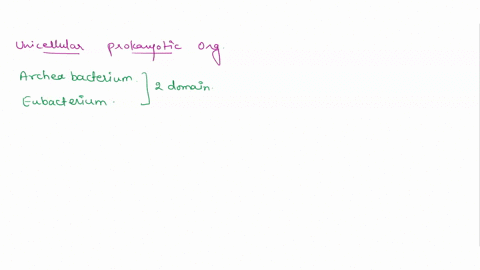 Unicellular prokaryotic Org.
Archea bacterium.
Eubacterium.
2 domain.